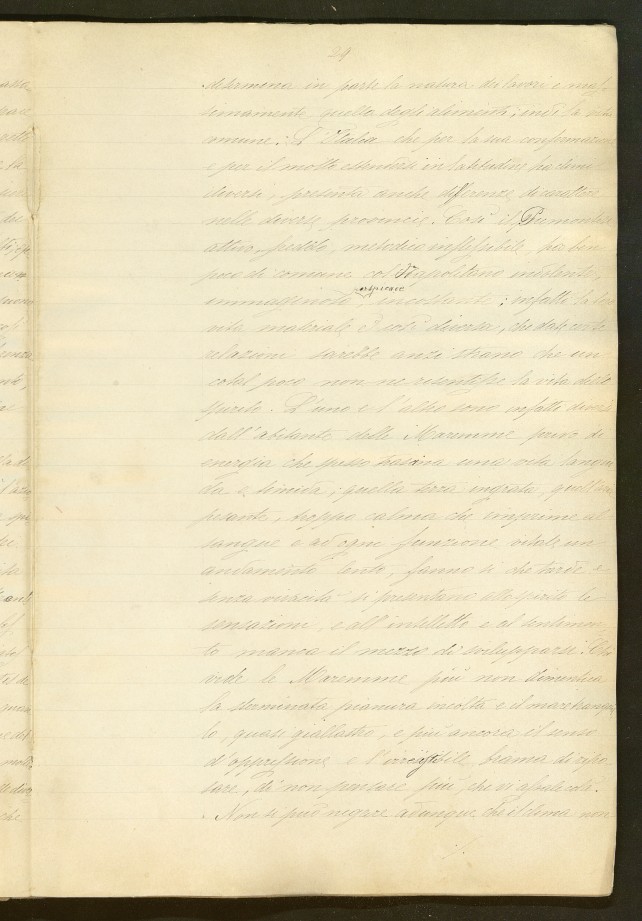 24
determina in parte la natura dei lavori e mas,
simamente quello degli alimenti; indi la vita
comune. L'Italia che per la sua conformazione
e per il molto estendersi in latitudine ha climi
diversi, presenta anche differenze di carattere
nelle diverse provincie. Così il Piemontese
attivo, freddo, melodico inflessibile, ha ben
poco di comune col Napoletano indolente,
immaginoso, vivace, incostante; infatti la loro
vita materiale è così diversa, che date certe
relazioni sarebbe anzi strano che un
cotal poco non ne risentisse la vita dello
spirito. L'uno e l'altro sono infatti diversi
dall'abitante delle Maremme privo di
energia che spesso trascina una vita langui
da e timida; quella terra ingrata, quell'aria
pesante, troppo calma che imprime al
sangue e ad ogni funzione vitale un
andamento lento, fanno sì che tarde e
senza vivacità si presentano allo spirito le
sensazioni, e all'intelletto e al sentimen,
to manca il mezzo di svilupparsi. Chi
vide le Maremme più non dimentica
la sterminata pianura incolta e il mare tranquil
lo, quasi giallastro, e più ancora il senso
d'oppressione e l'irresistibile brama di ripo
sare, di non pensare più che vi assale colà.
Non si può negare adunque che il clima non
./.